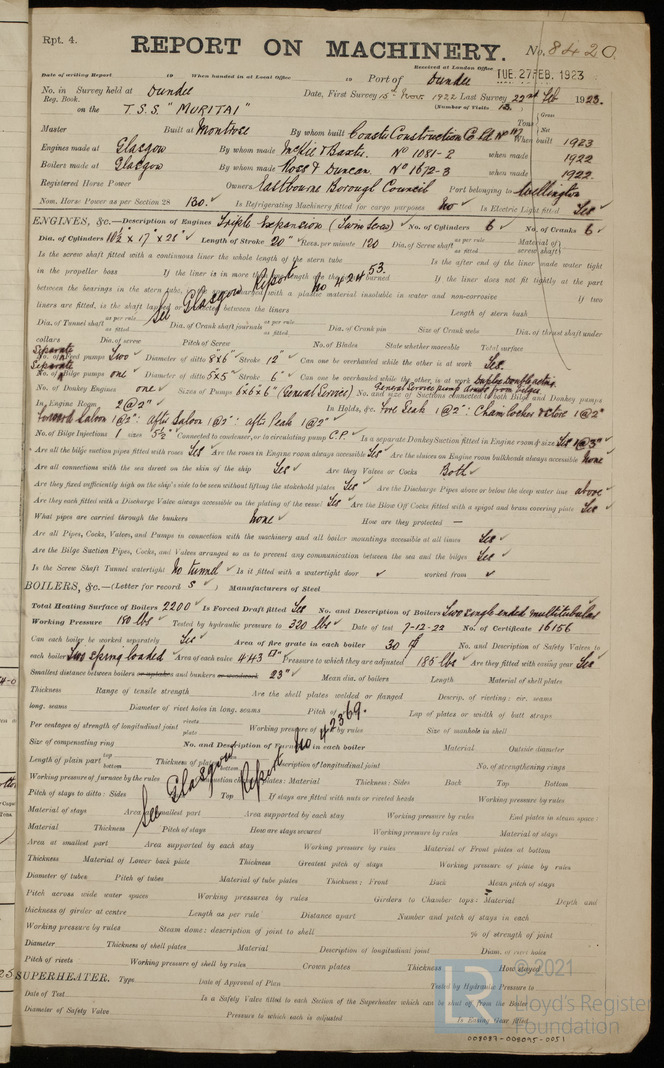 Rpt. 4.
REPORT ON MACHINERY. No. 8420
Received at London Office TUE. 27 FEB. 1923
Date of writing Report 19 When handed in at Local Office 19 Port of Dundee
No. in Survey held at Dundee Date, First Survey 15th Nov. 1922 Last Survey 22nd Feb 1923.
Reg. Book. (Number of Visits 13.)
on the T.S.S. "MURITAI" Tons Gross Net
Master Built at Montrose By whom built Coaster Construction Co. Ld No 117 When built 1923
Engines made at Glasgow By whom made McKie & Baxter. No 1081-2 when made 1922
Boilers made at Glasgow By whom made Ross & Duncan. No 1672-3 when made 1922.
Registered Horse Power Owners Eastbourne Borough Council Port belonging to Wellington
Nom. Horse Power as per Section 28 130. Is Refrigerating Machinery fitted for cargo purposes No Is Electric Light fitted Yes
ENGINES, &c.—Description of Engines Triple Expansion (Twin Screw) No. of Cylinders 6 No. of Cranks 6
Dia. of Cylinders 10½" x 17" x 28" Length of Stroke 20" Revs. per minute 120 Dia. of Screw shaft as per rule as fitted Material of screw shaft
Is the screw shaft fitted with a continuous liner the whole length of the stern tube Is the after end of the liner made water tight
in the propeller boss If the liner is in more than one length are the joints burned If the liner does not fit tightly at the part
between the bearings in the stern tube, is the space charged with a plastic material insoluble in water and non-corrosive If two
liners are fitted, is the shaft lapped or protected between the liners Length of stern bush
See Glasgow Report No 42453.
Dia. of Tunnel shaft as per rule as fitted Dia. of Crank shaft journals as per rule as fitted Dia. of Crank pin Size of Crank webs Dia. of thrust shaft under
collars Dia. of screw Pitch of Screw No. of Blades State whether moveable Total surface
Separate No. of Feed pumps Two Diameter of ditto 8"x6" Stroke 12" Can one be overhauled while the other is at work Yes.
Separate No. of Bilge pumps one Diameter of ditto 5"x5" Stroke 6" Can one be overhauled while the other is at work Duplex Double acting.
General Service pump draws from bilges
No. of Donkey Engines one Sizes of Pumps 6"x6"x6" (General Service) No. and size of Suctions connected to both Bilge and Donkey pumps
In Engine Room 2 @ 2" In Holds, &c. Fore Peak 1 @ 2":
Forward Saloon 1 @ 2": After Saloon 1 @ 2": After Peak 1 @ 2"
No. of Bilge Injections 1 sizes 5½" Connected to condenser, or to circulating pump C.P. Is a separate Donkey Suction fitted in Engine room & size Yes 1 @ 3"
Are all the bilge suction pipes fitted with roses Yes Are the roses in Engine room always accessible Yes Are the sluices on Engine room bulkheads always accessible None
Are all connections with the sea direct on the skin of the ship Yes Are they Valves or Cocks Both
Are they fixed sufficiently high on the ship's side to be seen without lifting the stokehold plates Yes Are the Discharge Pipes above or below the deep water line above
Are they each fitted with a Discharge Valve always accessible on the plating of the vessel Yes Are the Blow Off Cocks fitted with a spigot and brass covering plate Yes
What pipes are carried through the bunkers None How are they protected —
Are all Pipes, Cocks, Valves, and Pumps in connection with the machinery and all boiler mountings accessible at all times Yes
Are the Bilge Suction Pipes, Cocks, and Valves arranged so as to prevent any communication between the sea and the bilges Yes
Is the Screw Shaft Tunnel watertight No tunnel Is it fitted with a watertight door worked from
BOILERS, &c.—(Letter for record S) Manufacturers of Steel
Total Heating Surface of Boilers 2200 Is Forced Draft fitted Yes No. and Description of Boilers Two single ended multitubular
Working Pressure 180 lbs Tested by hydraulic pressure to 320 lbs Date of test 7-12-22 No. of Certificate 16156
Can each boiler be worked separately Yes Area of fire grate in each boiler 30 No. and Description of Safety Valves to
each boiler Two spring loaded Area of each valve 4.43 Pressure to which they are adjusted 185 lbs Are they fitted with easing gear Yes
Smallest distance between boilers or uptakes and bunkers or woodwork 23" Mean dia. of boilers Length Material of shell plates
Thickness Range of tensile strength Are the shell plates welded or flanged Descrip. of riveting: cir. seams
long. seams Diameter of rivet holes in long. seams Pitch of rivets Lap of plates or width of butt straps
Per centages of strength of longitudinal joint rivets plate Working pressure of shell by rules Size of manhole in shell
Size of compensating ring No. and Description of Furnaces in each boiler Material Outside diameter
Length of plain part top bottom Thickness of plates Description of longitudinal joint No. of strengthening rings
Working pressure of furnace by the rules Combustion chamber plates: Material Thickness: Sides Back Top Bottom
See Glasgow Report No 42369.
Pitch of stays to ditto: Sides Top If stays are fitted with nuts or riveted heads Working pressure by rules
Material of stays Area at smallest part Area supported by each stay Working pressure by rules End plates in steam space:
Material Thickness Pitch of stays How are stays secured Working pressure by rules Material of stays
Area at smallest part Area supported by each stay Working pressure by rules Material of Front plates at bottom
Thickness Material of Lower back plate Thickness Greatest pitch of stays Working pressure of plate by rules
Diameter of tubes Pitch of tubes Material of tube plates Thickness: Front Back Mean pitch of stays
Pitch across wide water spaces Working pressures by rules Girders to Chamber tops: Material Depth and
thickness of girder at centre Length as per rule Distance apart Number and pitch of stays in each
Working pressure by rules Steam dome: description of joint to shell % of strength of joint
Diameter Thickness of shell plates Material Description of longitudinal joint Diam. of rivet holes
Pitch of rivets Working pressure of shell by rules Crown plates Thickness How stayed
SUPERHEATER. Type Date of Approval of Plan Tested by Hydraulic Pressure to
Date of Test Is a Safety Valve fitted to each Section of the Superheater which can be shut off from the Boiler
Diameter of Safety Valve Pressure to which each is adjusted Is Easing Gear fitted
© 2021
Lloyd's Register
Foundation
008087-008095-0051